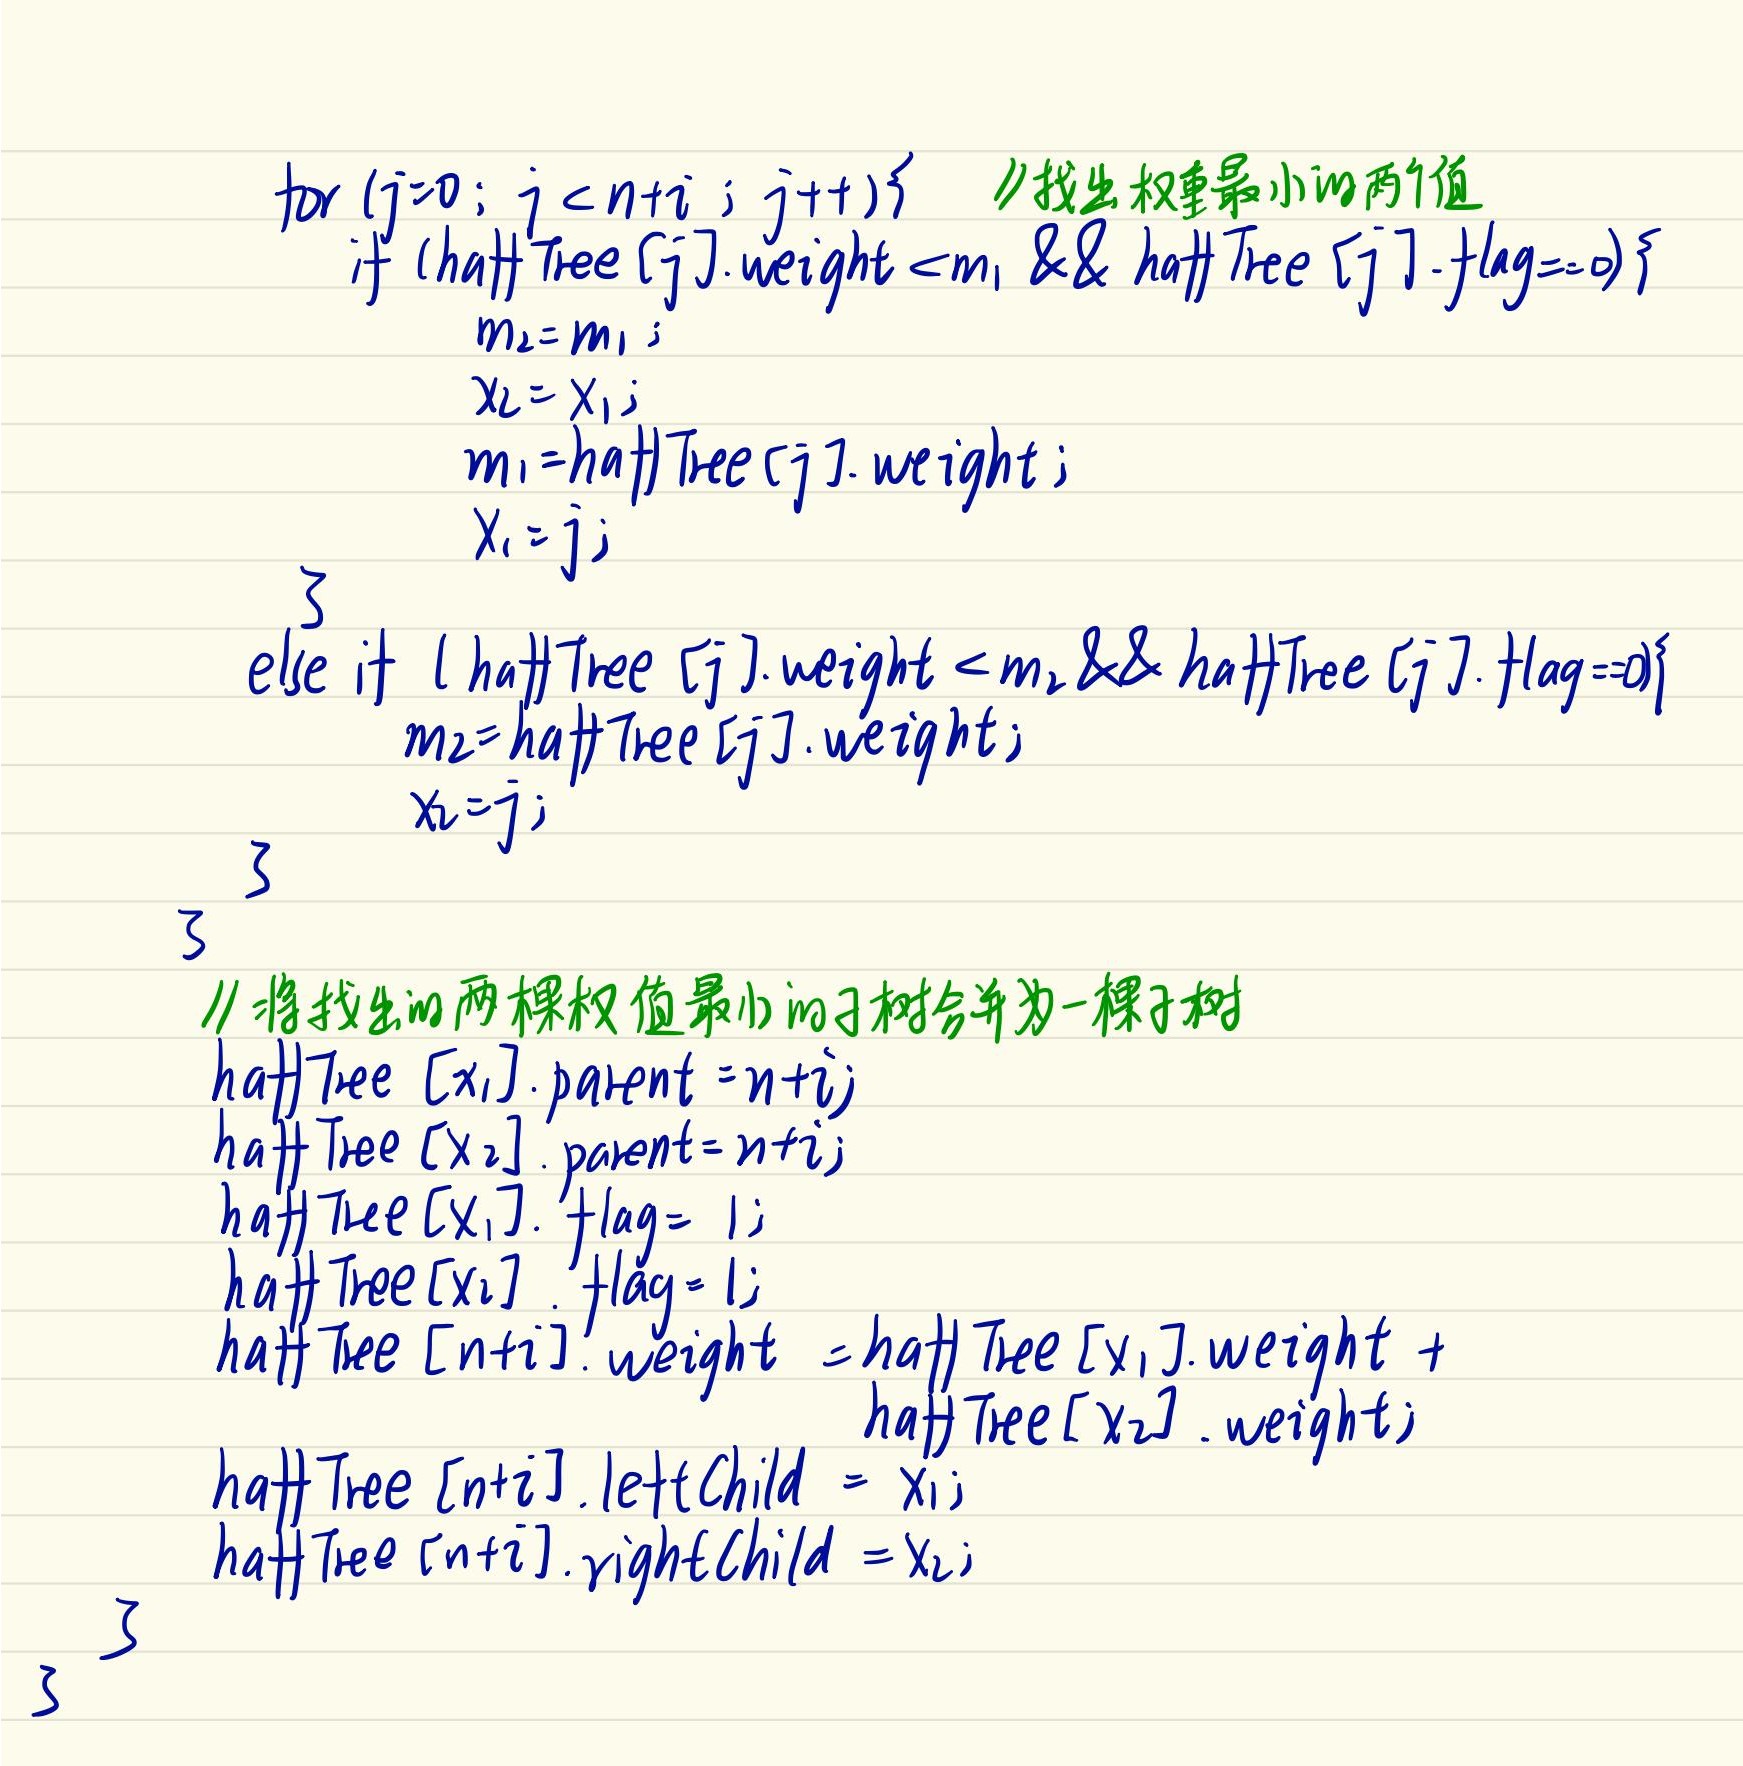 for (j=0; j<n+i; j++){ //找出权重最小的两个值
if (haffTree[j].weight<m1 && haffTree[j].flag==0){
m2=m1;
x2=x1;
m1=haffTree[j].weight;
x1=j;
}
else if (haffTree[j].weight<m2 && haffTree[j].flag==0){
m2=haffTree[j].weight;
x2=j;
}
}
//将找出的两棵权值最小的子树合并为一棵子树
haffTree[x1].parent=n+i;
haffTree[x2].parent=n+i;
haffTree[x1].flag=1;
haffTree[x2].flag=1;
haffTree[n+i].weight=haffTree[x1].weight+
haffTree[x2].weight;
haffTree[n+i].leftChild=x1;
haffTree[n+i].rightChild=x2;
}
}